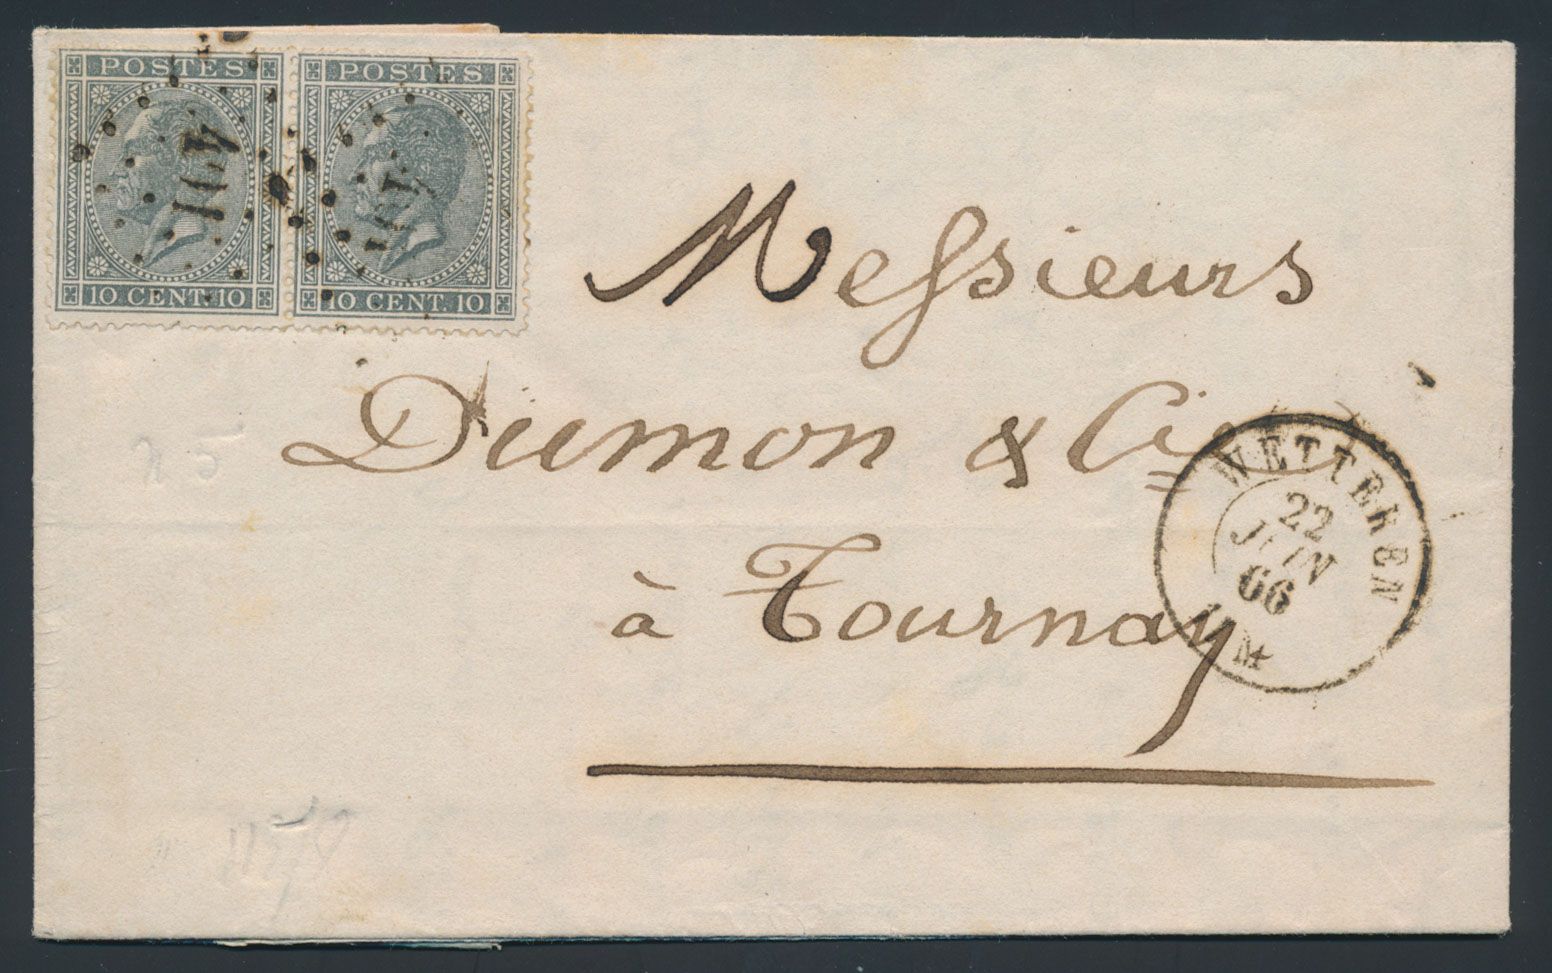 POSTES POSTES
10 CENT. 10 10 CENT. 10
Messieurs
Dumon & Cie
à Tournay
WETTEREN
22
JUIN
66